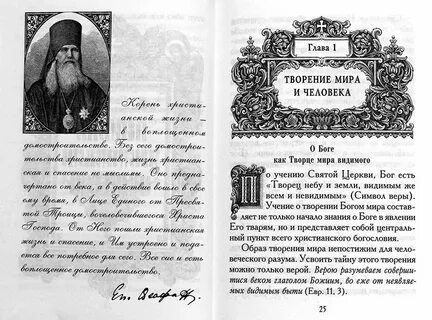 Корень христи-
анской жизни —
в воплощенном
домостроительстве. Без сего домострои-
тельства христианство, жизнь христианская
и спасение не мыслимы. Оно пред-
начертано от века, а в действо вошло в свое
ему время, в Лице Единого от Пресвя-
той Троицы, вочеловечившегося Христа
Господа. От Него пошли христианская
жизнь и спасение, и Им устроено и пода-
ется все потребное для сего. Все сие и есть
воплощенное домостроительство.
Еп. Феофан.
Глава 1
ТВОРЕНИЕ МИРА
И ЧЕЛОВЕКА
О Боге
как Творце мира видимого
По учению Святой Церкви, Бог есть
«Творец небу и земли, видимым же
всем и невидимым» (Символ веры).
Учение о творении Богом мира составляет
не только начало знания о Боге в явлении
Его тварям, но и представляет собой централь-
ный пункт всего христианского богословия.
Образ творения мира непостижим для че-
ловеческого разума. Усвоить тайну этого творения
можно только верой. Верою разумеваем совершити-
ся веком глаголом Божиим, во еже от неявляе-
мых видимым быти (Евр. 11, 3).
25